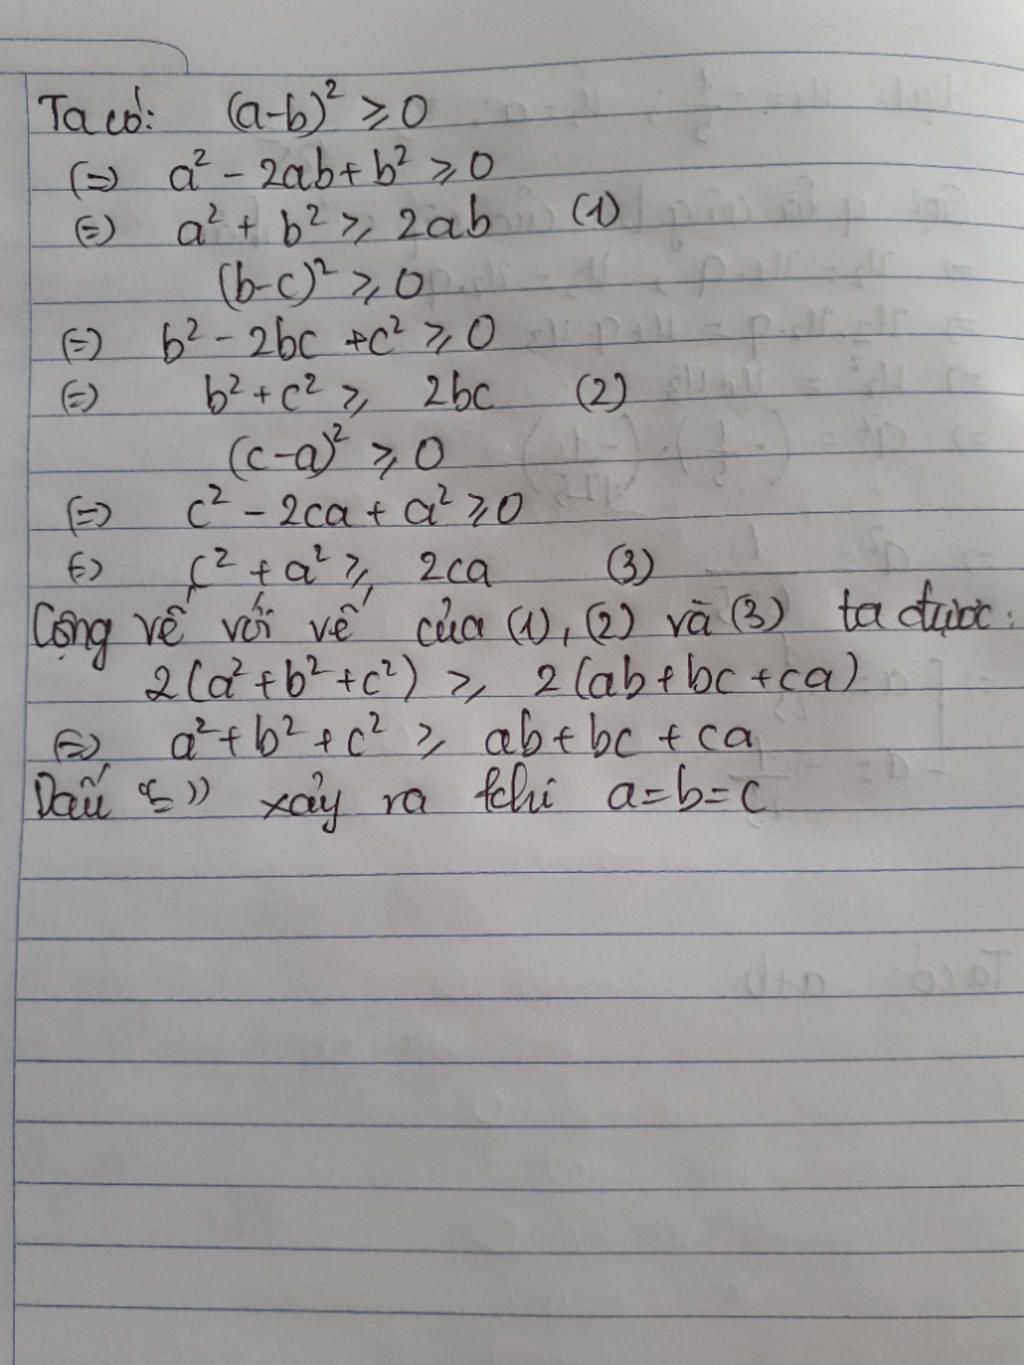 Ta có: (a-b)² ≥ 0
(=) a² - 2ab + b² ≥ 0
(=) a² + b² ≥ 2ab (1)
(b-c)² ≥ 0
(=) b² - 2bc + c² ≥ 0
(=) b² + c² ≥ 2bc (2)
(c-a)² ≥ 0
(=) c² - 2ca + a² ≥ 0
(=) c² + a² ≥ 2ca (3)
Cộng vế với vế của (1), (2) và (3) ta được:
2(a² + b² + c²) ≥ 2(ab + bc + ca)
(=) a² + b² + c² ≥ ab + bc + ca
Dấu "=" xảy ra khi a=b=c